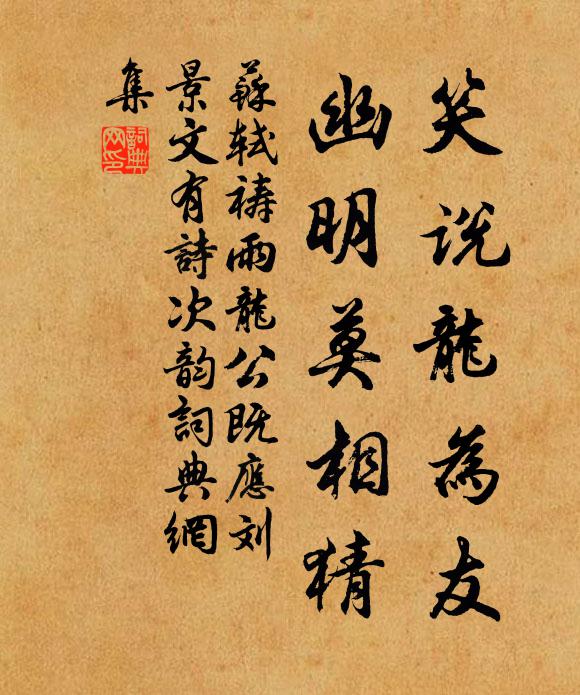 笑说龍為友
幽明莫相猜
蘇轼禱雨龍公既應刘
景文有詩次韵詞典網
集
詞典网印